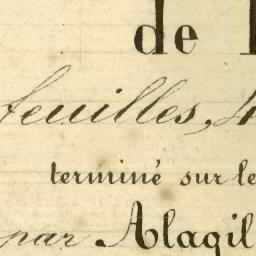 de
feuilles, 4
terminé sur le
par Alagil